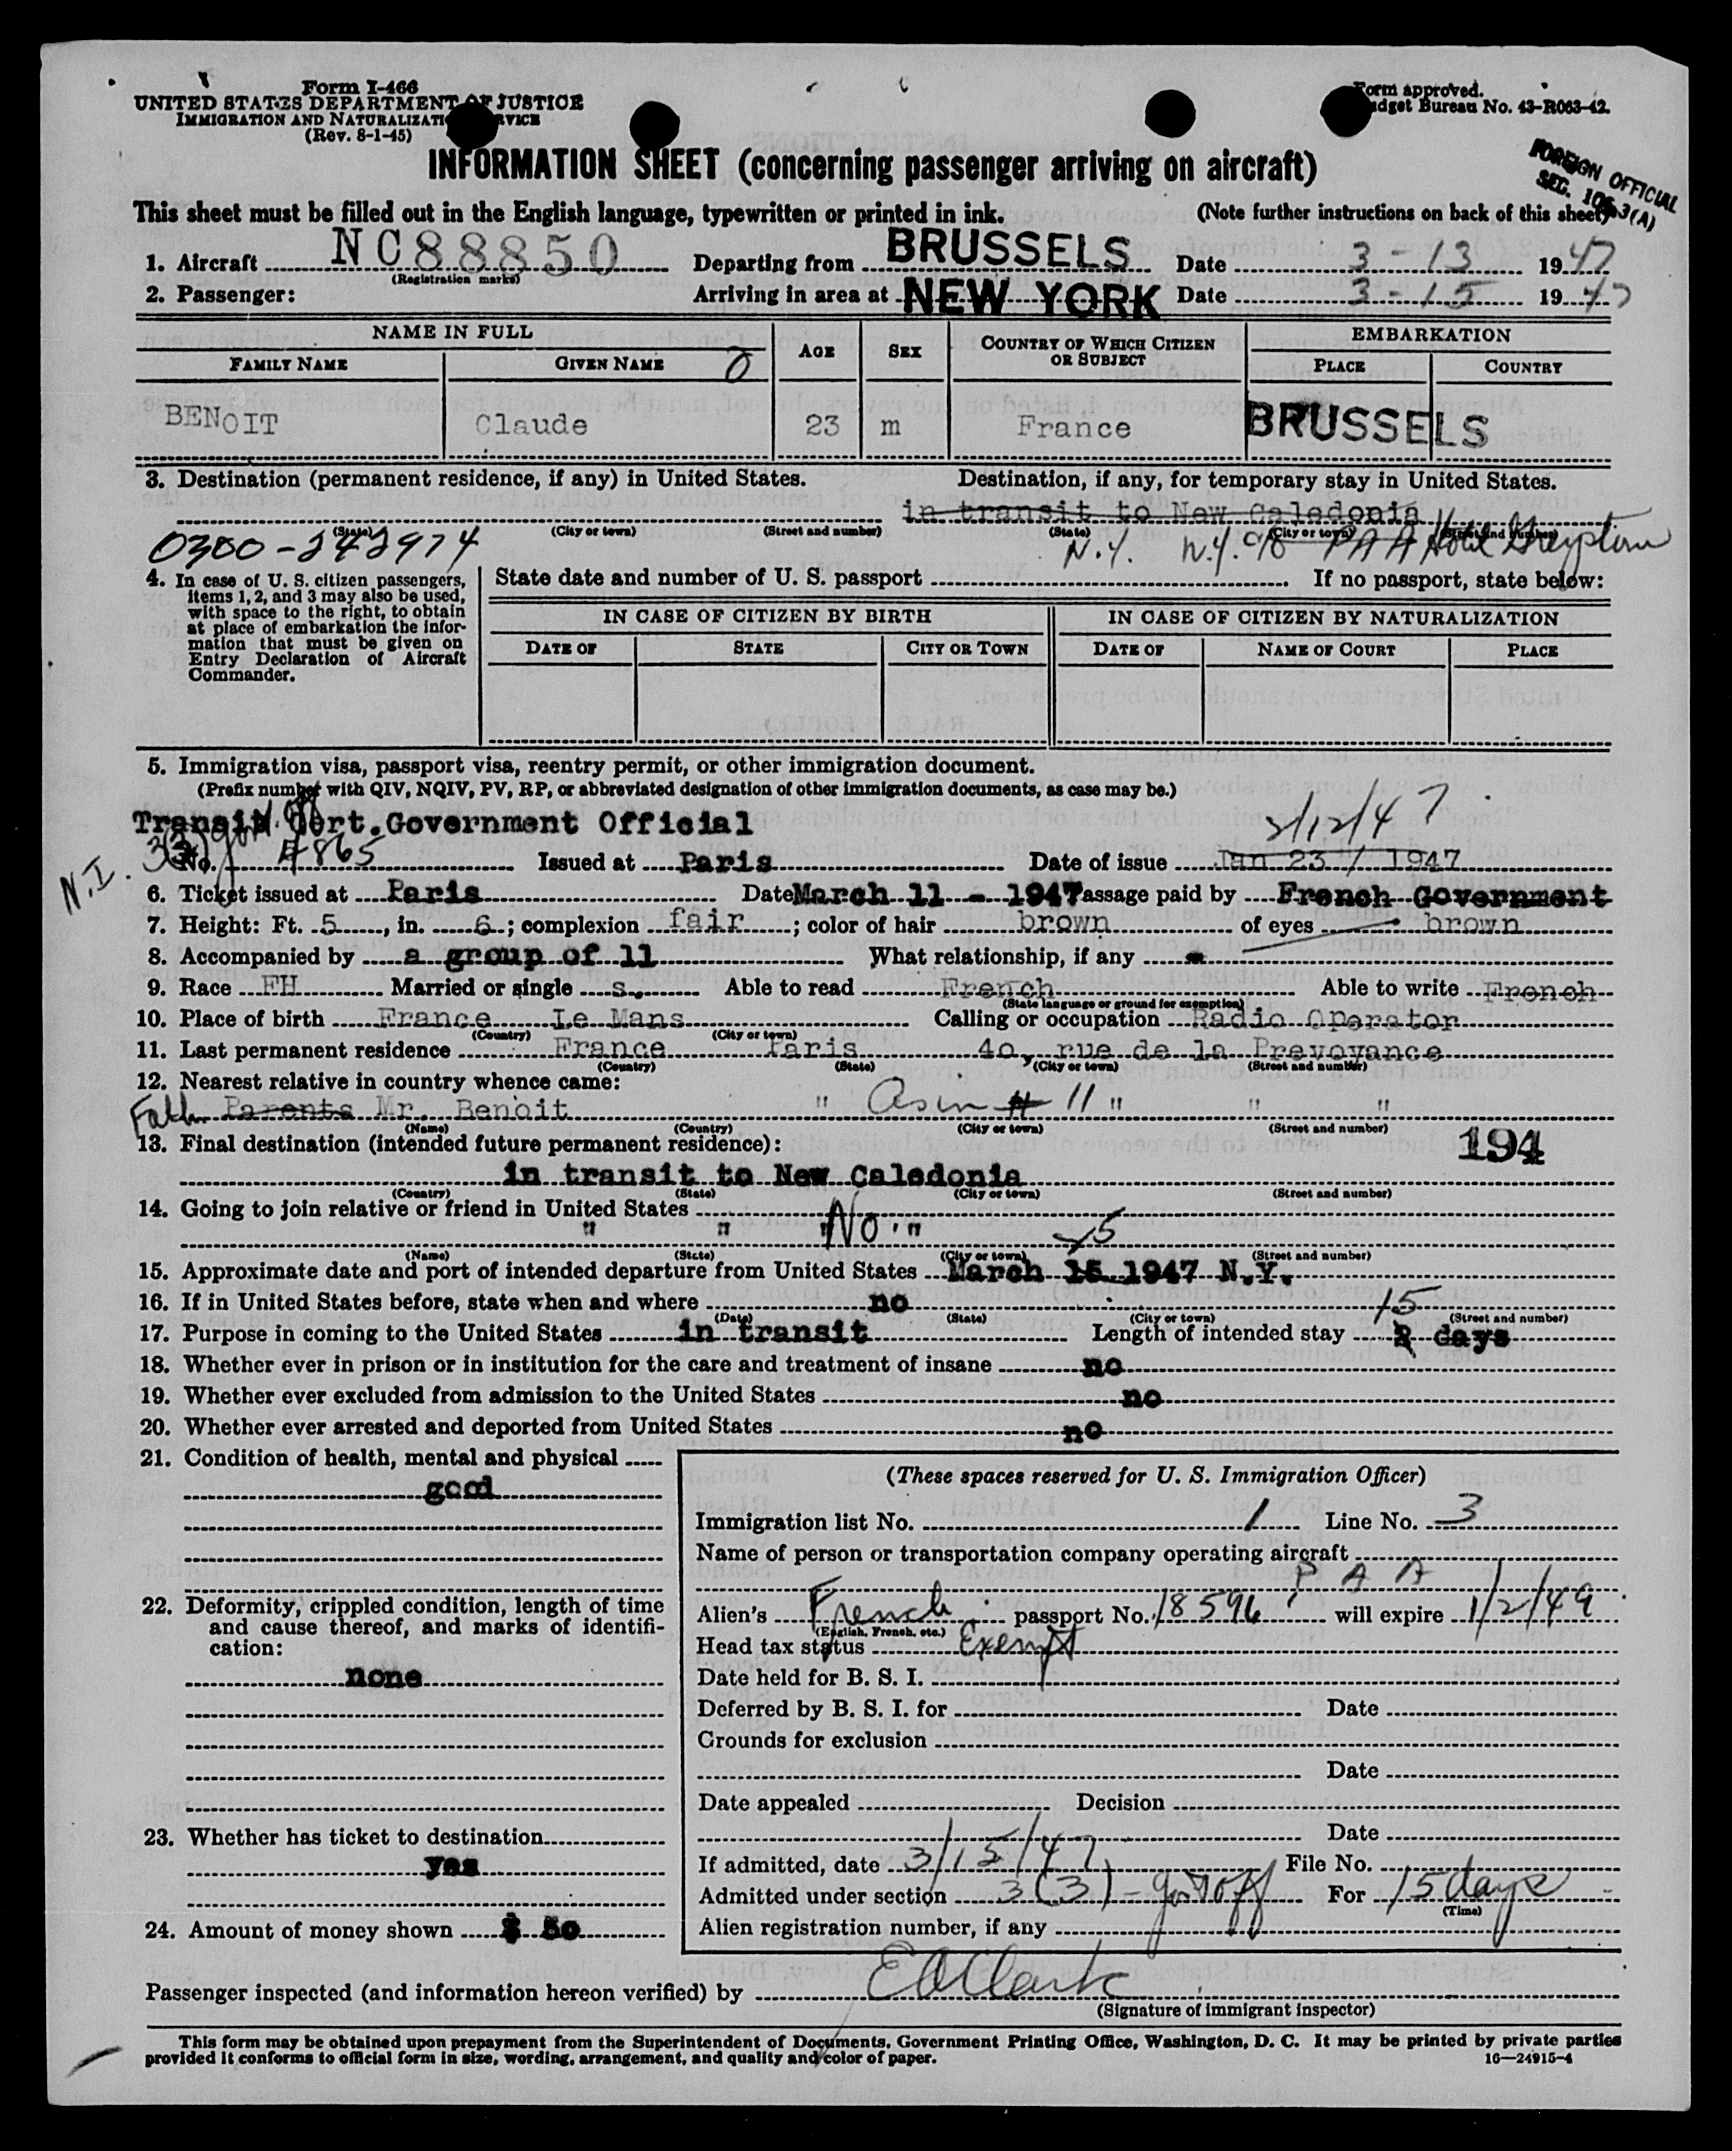 Form I-466
UNITED STATES DEPARTMENT OF JUSTICE
IMMIGRATION AND NATURALIZATION SERVICE
(Rev. 8-1-45)
Form approved.
Budget Bureau No. 43-R063-42.
INFORMATION SHEET (concerning passenger arriving on aircraft)
FOREIGN OFFICIAL
SEC. 3(A)
This sheet must be filled out in the English language, typewritten or printed in ink. (Note further instructions on back of this sheet)
1. Aircraft NC88850 Departing from BRUSSELS Date 3-13 1947
(Registration marks)
2. Passenger: Arriving in area at NEW YORK Date 3-15 1947
NAME IN FULL AGE SEX COUNTRY OF WHICH CITIZEN OR SUBJECT EMBARKATION
FAMILY NAME GIVEN NAME PLACE COUNTRY
BENOIT Claude 23 m France BRUSSELS
3. Destination (permanent residence, if any) in United States. Destination, if any, for temporary stay in United States.
in transit to New Caledonia
(State) (City or town) (Street and number) (State) (City or town) (Street and number)
0300-242974 N.Y. N.Y. c/o PAA Hotel
4. In case of U. S. citizen passengers, items 1, 2, and 3 may also be used, with space to the right, to obtain at place of embarkation the information that must be given on Entry Declaration of Aircraft Commander.
State date and number of U. S. passport If no passport, state below:
IN CASE OF CITIZEN BY BIRTH IN CASE OF CITIZEN BY NATURALIZATION
DATE OF STATE CITY OR TOWN DATE OF NAME OF COURT PLACE
5. Immigration visa, passport visa, reentry permit, or other immigration document.
(Prefix number with QIV, NQIV, PV, RP, or abbreviated designation of other immigration documents, as case may be.)
Transit Cert. Government Official 2/12/47
N.I. 3(3) No. 4865 Issued at Paris Date of issue Jan 23 / 1947
6. Ticket issued at Paris Date March 11 - 1947 Passage paid by French Government
7. Height: Ft. 5, in. 6; complexion fair; color of hair brown of eyes brown
8. Accompanied by a group of 11 What relationship, if any
9. Race FH Married or single s. Able to read French Able to write French
(State language or ground for exemption)
10. Place of birth France Le Mans Calling or occupation Radio Operator
(Country) (City or town)
11. Last permanent residence France Paris 40, rue de la Prevoyance
(Country) (State) (City or town) (Street and number)
12. Nearest relative in country whence came:
Fath Parents Mr. Benoit " As in # 11 " " "
(Name) (Country) (City or town) (Street and number)
13. Final destination (intended future permanent residence): 194
in transit to New Caledonia
(Country) (State) (City or town) (Street and number)
14. Going to join relative or friend in United States
" " " No " 25
(Name) (State) (City or town) (Street and number)
15. Approximate date and port of intended departure from United States March 15 1947 N.Y.
16. If in United States before, state when and where no
(Date) (State) (City or town) (Street and number)
17. Purpose in coming to the United States in transit Length of intended stay 15 2 days
18. Whether ever in prison or in institution for the care and treatment of insane no
19. Whether ever excluded from admission to the United States no
20. Whether ever arrested and deported from United States no
21. Condition of health, mental and physical
good
22. Deformity, crippled condition, length of time and cause thereof, and marks of identification:
none
23. Whether has ticket to destination
yes
24. Amount of money shown $ 50
(These spaces reserved for U. S. Immigration Officer)
Immigration list No. 1 Line No. 3
Name of person or transportation company operating aircraft
P A A
Alien's French passport No. 18596 will expire 1/2/49
(English, French, etc.)
Head tax status Exempt
Date held for B. S. I.
Deferred by B. S. I. for Date
Grounds for exclusion
Date
Date appealed Decision
Date
If admitted, date 3/15/47 File No.
Admitted under section 3(3) - Gov't Off For 15 days
(Time)
Alien registration number, if any
Passenger inspected (and information hereon verified) by E A Clark
(Signature of immigrant inspector)
This form may be obtained upon prepayment from the Superintendent of Documents, Government Printing Office, Washington, D. C. It may be printed by private parties
provided it conforms to official form in size, wording, arrangement, and quality and color of paper. 16—24915-4